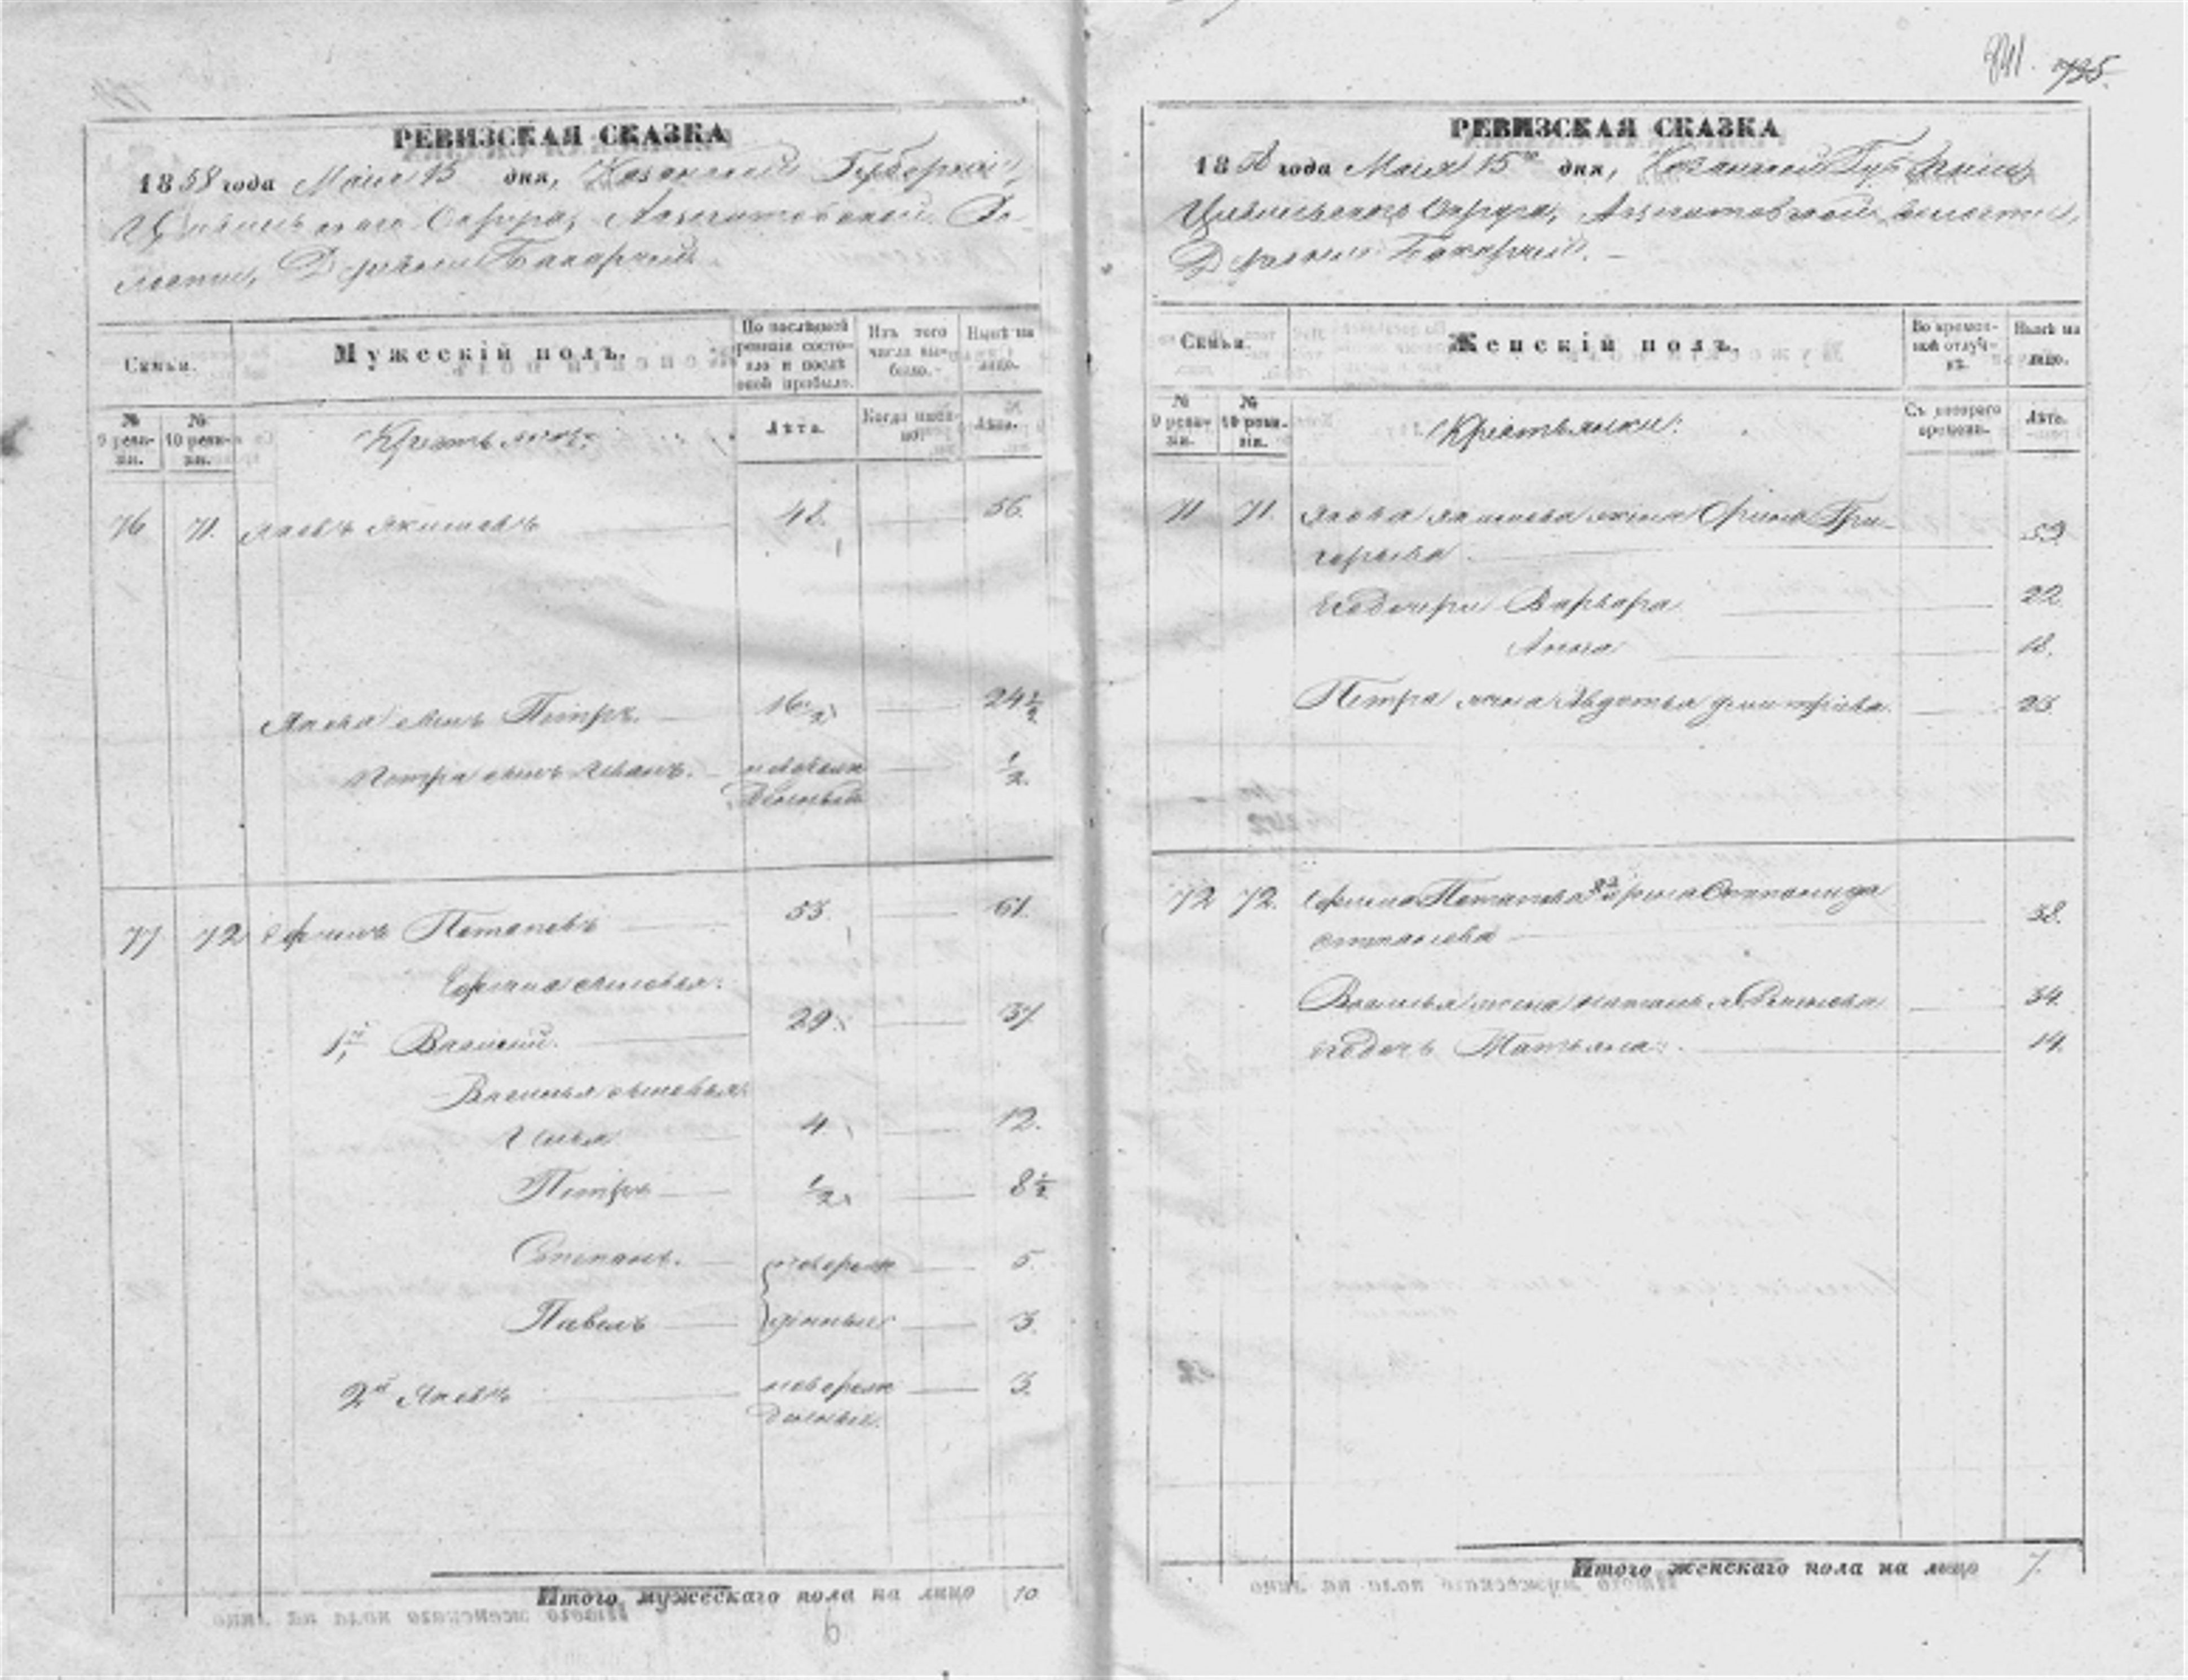 841. 735.
РЕВИЗСКАЯ СКАЗКА
1858 года Маія 15 дня, Казанской Губерніи,
Цивильскаго Округа, Во-
лости, Деревни
Семьи.
Мужескій полъ.
По послѣдней ревизіи состояло и послѣ оной прибыло.
Изъ того числа выбыло.
Нынѣ на лицо.
№ 9 ревизіи.
№ 10 ревизіи.
Крестьяне:
Лѣта.
Когда именно?
Лѣта.
76 71. Яковъ Якимовъ 48. 56.
Якова сынъ Петръ. 16 1/2 24 1/2
Петра сынъ Иванъ. новорож 1/2
денный
77 72 Ефимъ Потаповъ 53. 61.
Ефима сыновья:
1й Василій. 29. 37
Василья сыновья:
Илья 4. 12.
Петръ 1/2 8 1/2
Степанъ. новорож 5.
Павелъ денные 3.
2й Яковъ новорож 3.
денный.
Итого мужескаго пола на лицо 10
РЕВИЗСКАЯ СКАЗКА
1858 года Маія 15го дня, Казанской Губерніи,
Цивильскаго Округа, волости,
Деревни
Семьи.
Женскій полъ.
Во временной отлучкѣ.
Нынѣ на лицо.
№ 9 ревизіи.
№ 10 ревизіи.
Крестьянки:
Съ котораго времени.
Лѣта.
71 71. Якова Якимова жена Орина Гри-
горьева 59.
Егодочери Варвара 22.
Анна 18.
Петра жена Авдотья Дмитріева. 25.
72 72. Ефима Потапова 2я жена
Степанова 38.
Василья жена Наталья 34.
Егодочь Татьяна. 14.
Итого женскаго пола на лицо 7.